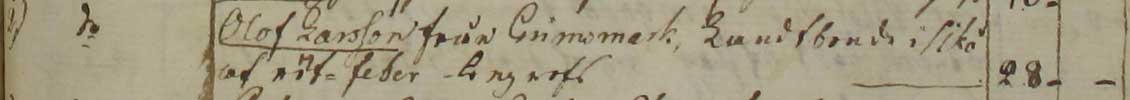 do Olof Larsson från Grimsmark, Landtbonde i lika
af röt=feber - begrofs 28 -